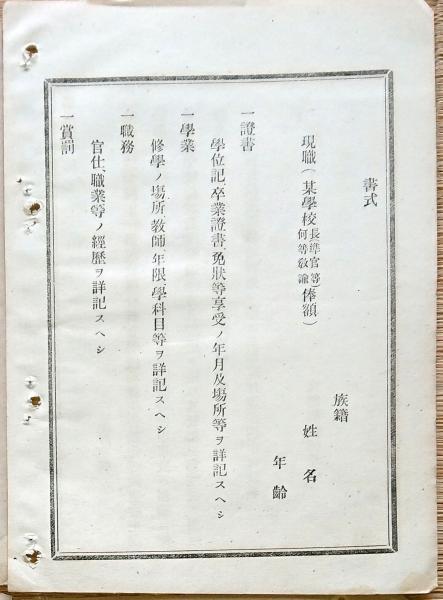 書式
族籍
現職(某學校長準官等何等敎諭俸額)
姓名
年齡
一證書
學位記、卒業證書、免狀等享受ノ年月及塲所等ヲ詳記スヘシ
一學業
修學ノ塲所、敎師、年限、學科目等ヲ詳記スヘシ
一職務
官仕、職業等ノ經歷ヲ詳記スヘシ
一賞罰